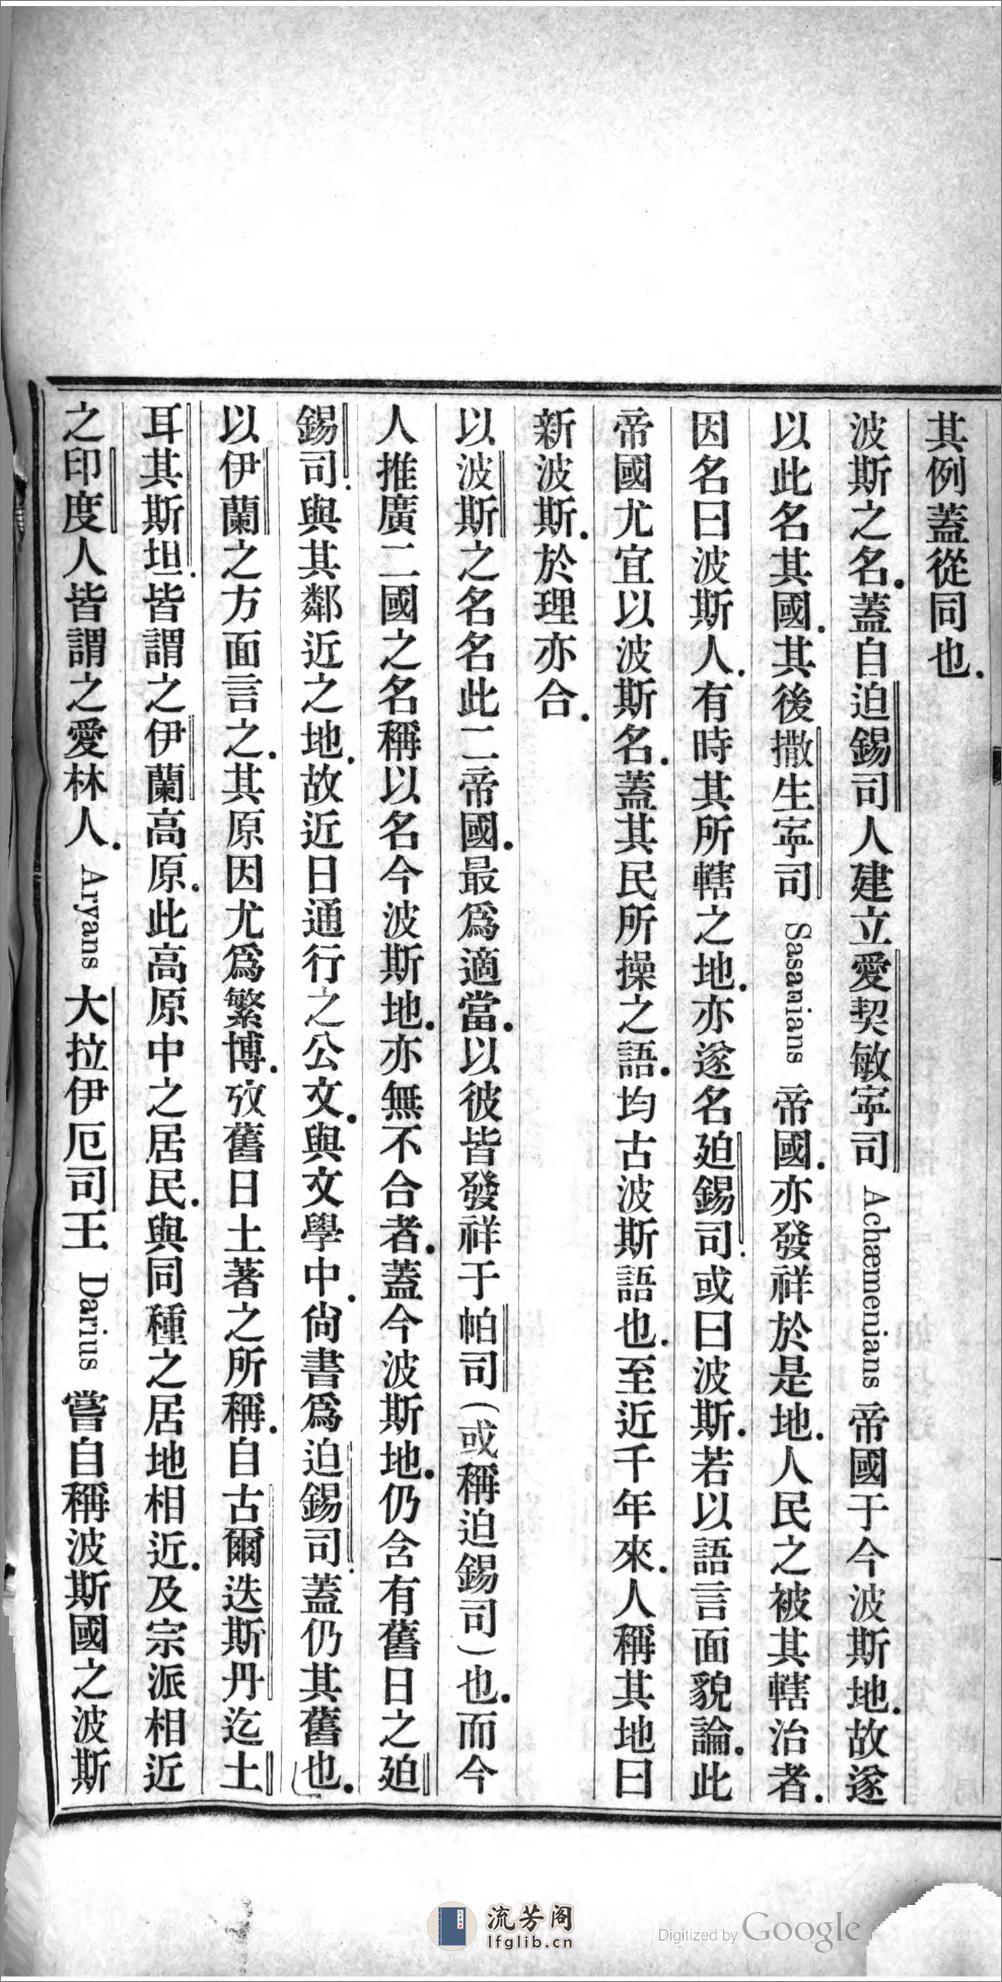 其例蓋從同也.
波斯之名.蓋自迫錫司人建立愛契敏寜司 Achæmenians 帝國于今波斯地.故遂
以此名其國.其後撒生寜司 Sasanians 帝國.亦發祥於是地.人民之被其轄治者.
因名曰波斯人.有時其所轄之地.亦遂名廹錫司.或曰波斯.若以語言面貌論.此
帝國尤宜以波斯名.蓋其民所操之語.均古波斯語也.至近千年來.人稱其地曰
新波斯.於理亦合.
以波斯之名名此二帝國.最爲適當.以彼皆發祥于帕司(或稱迫錫司)也.而今
人推廣二國之名稱以名今波斯地.亦無不合者.蓋今波斯地.仍含有舊日之廹
錫司.與其鄰近之地.故近日通行之公文.與文學中.尙書爲迫錫司.蓋仍其舊也.
以伊蘭之方面言之.其原因尤爲繁博.攷舊日土著之所稱.自古爾迭斯丹迄土
耳其斯坦.皆謂之伊蘭高原.此高原中之居民.與同種之居地相近.及宗派相近
之印度人皆謂之愛林人. Aryans 大拉伊厄司王 Darius 嘗自稱波斯國之波斯
流芳阁
lfglib.cn
Digitized by Google